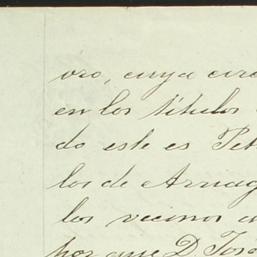 oro, cuya circ
en los títulos
do este es Pet
los de Arriag
los vecinos
por que D. José